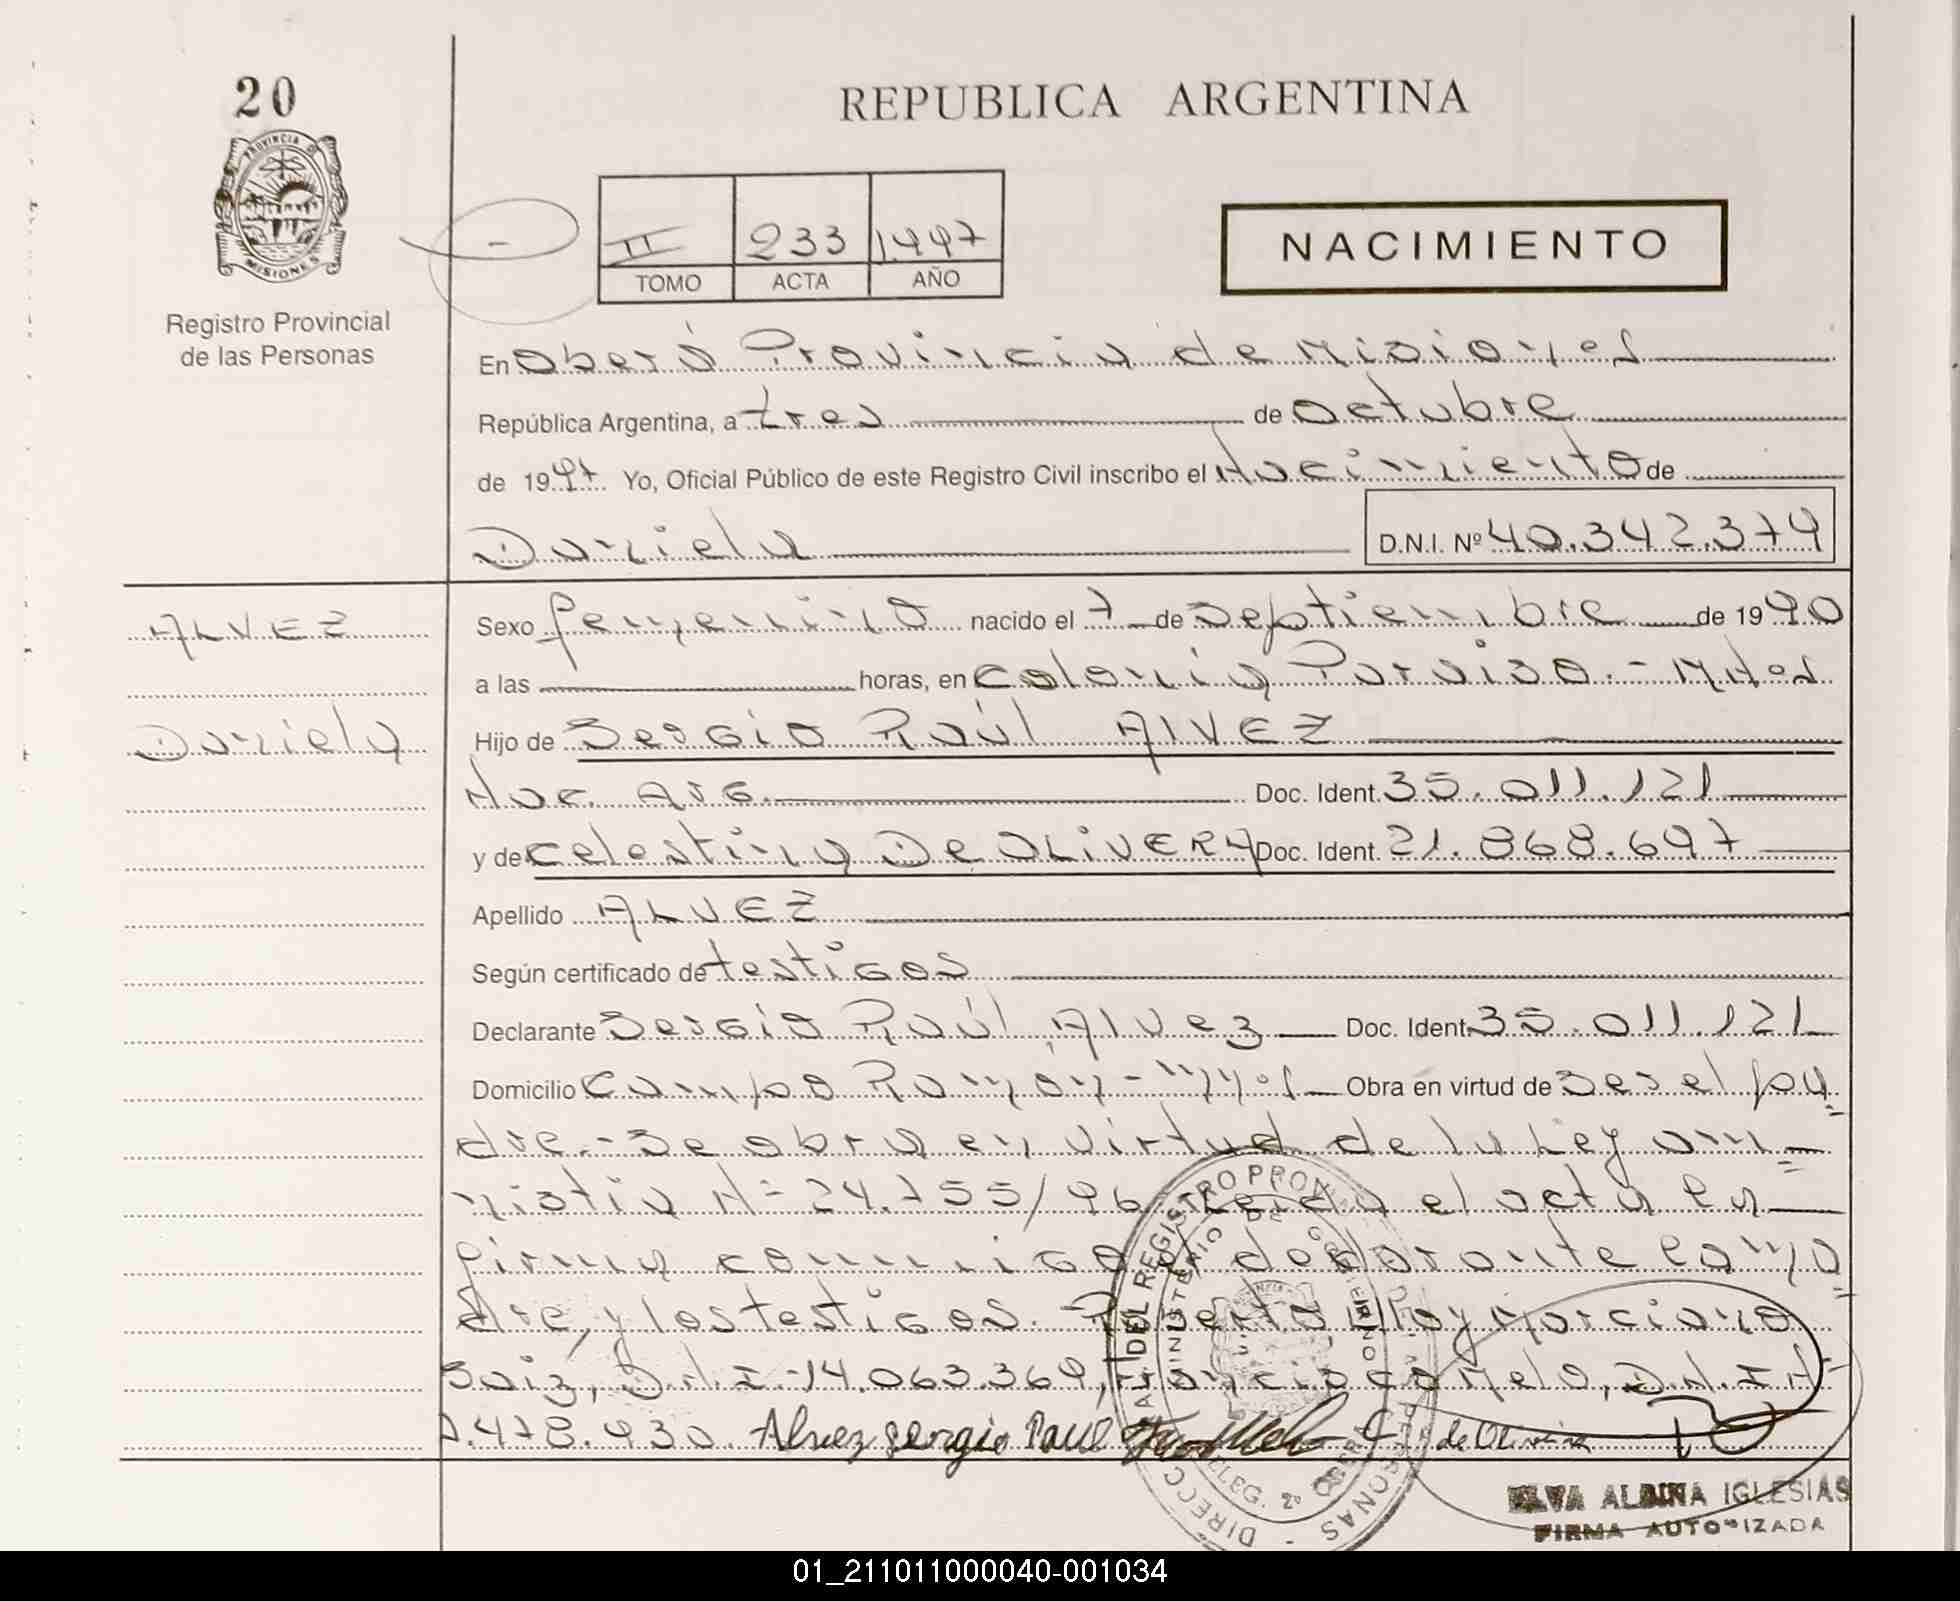 20
REPUBLICA ARGENTINA
PROVINCIA DE
MISIONES
Registro Provincial
de las Personas
II 233 1.997
TOMO ACTA AÑO
NACIMIENTO
En Oberá Provincia de Misiones
República Argentina, a tres de octubre
de 1997. Yo, Oficial Público de este Registro Civil inscribo el Nacimiento de
Daniela D.N.I. Nº 40.342.379
ALVEZ
Daniela
Sexo femenino nacido el 7 de Septiembre de 1990
a las horas, en Colonia Paraiso.- Mnes
Hijo de Sergio Raúl ALVEZ
Nac. Arg. Doc. Ident. 35.011.121
y de Celestina De OLIVERA Doc. Ident. 21.868.697
Apellido ALVEZ
Según certificado de testigos
Declarante Sergio Raúl Alvez Doc. Ident. 35.011.121
Domicilio Campo Ramón - Mnes Obra en virtud de ser el pa
dre.- Se obra en virtud de la Ley am
nistia Nº 24.755/96 Leida el acta la
firma conmigo el declarante la ma
dre, y los testigos. Roberto Eloy Marciano
Saiz, D.N.I. 14.063.369, Francisco Melo, D.N.I Nº
7.478.930. Alvez Sergio Raul C de Olivera
DIRECC. GRAL. DEL REGISTRO PROV. DE LAS PERSONAS
MINISTERIO DE GOBIERNO
DELEG. 2º OBERA
ELVA ALBINA IGLESIAS
FIRMA AUTORIZADA
01_211011000040-001034